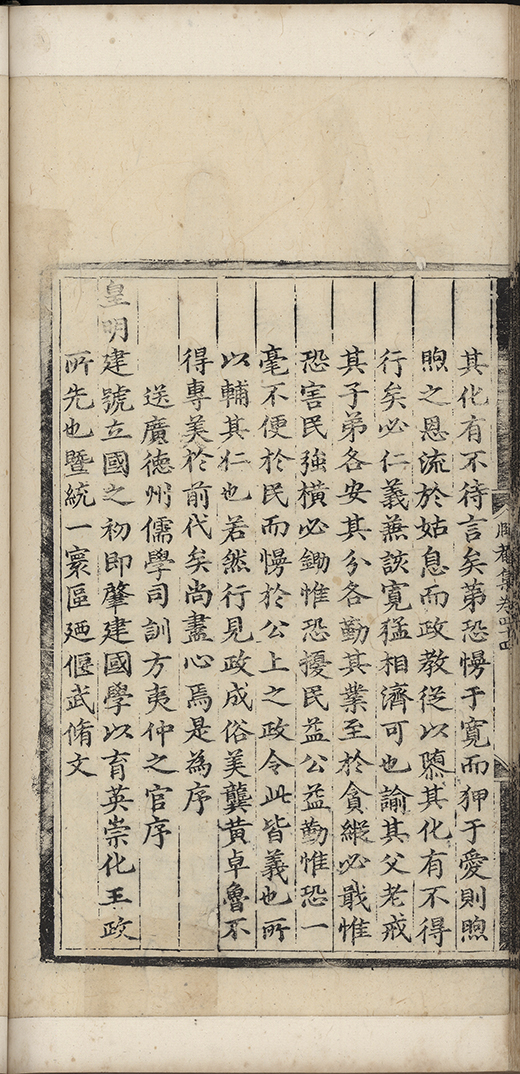 其化有不待言矣第恐慢于寬而狎于愛則煦
煦之恩流於姑息而政教從以隳其化有不得
行矣必仁義兼該寬猛相濟可也諭其父老戒
其子弟各安其分各勤其業至於貪縱必戢惟
恐害民強橫必鋤惟恐擾民益公益勤惟恐一
毫不便於民而慢於公上之政令此皆義也所
以輔其仁也若然行見政成俗美龔黃卓魯不
得專美於前代矣尚盡心焉是為序
送廣德州儒學司訓方夷仲之官序
皇明建號立國之初即肇建國學以育英崇化王政
所先也暨統一寰區廼偃武脩文